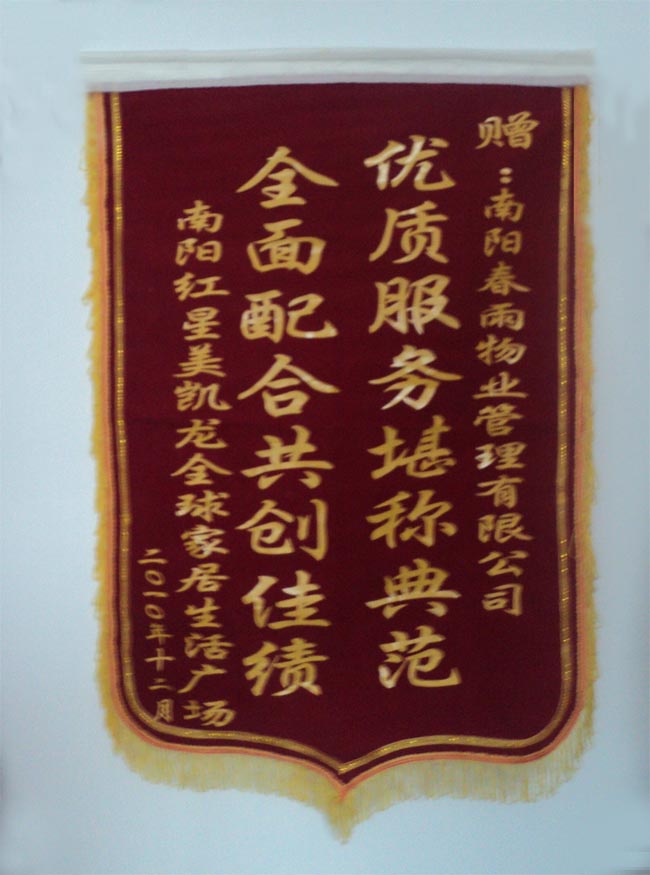 赠：南阳春雨物业管理有限公司
优质服务堪称典范
全面配合共创佳绩
南阳红星美凯龙全球家居生活广场
二〇一〇年十二月